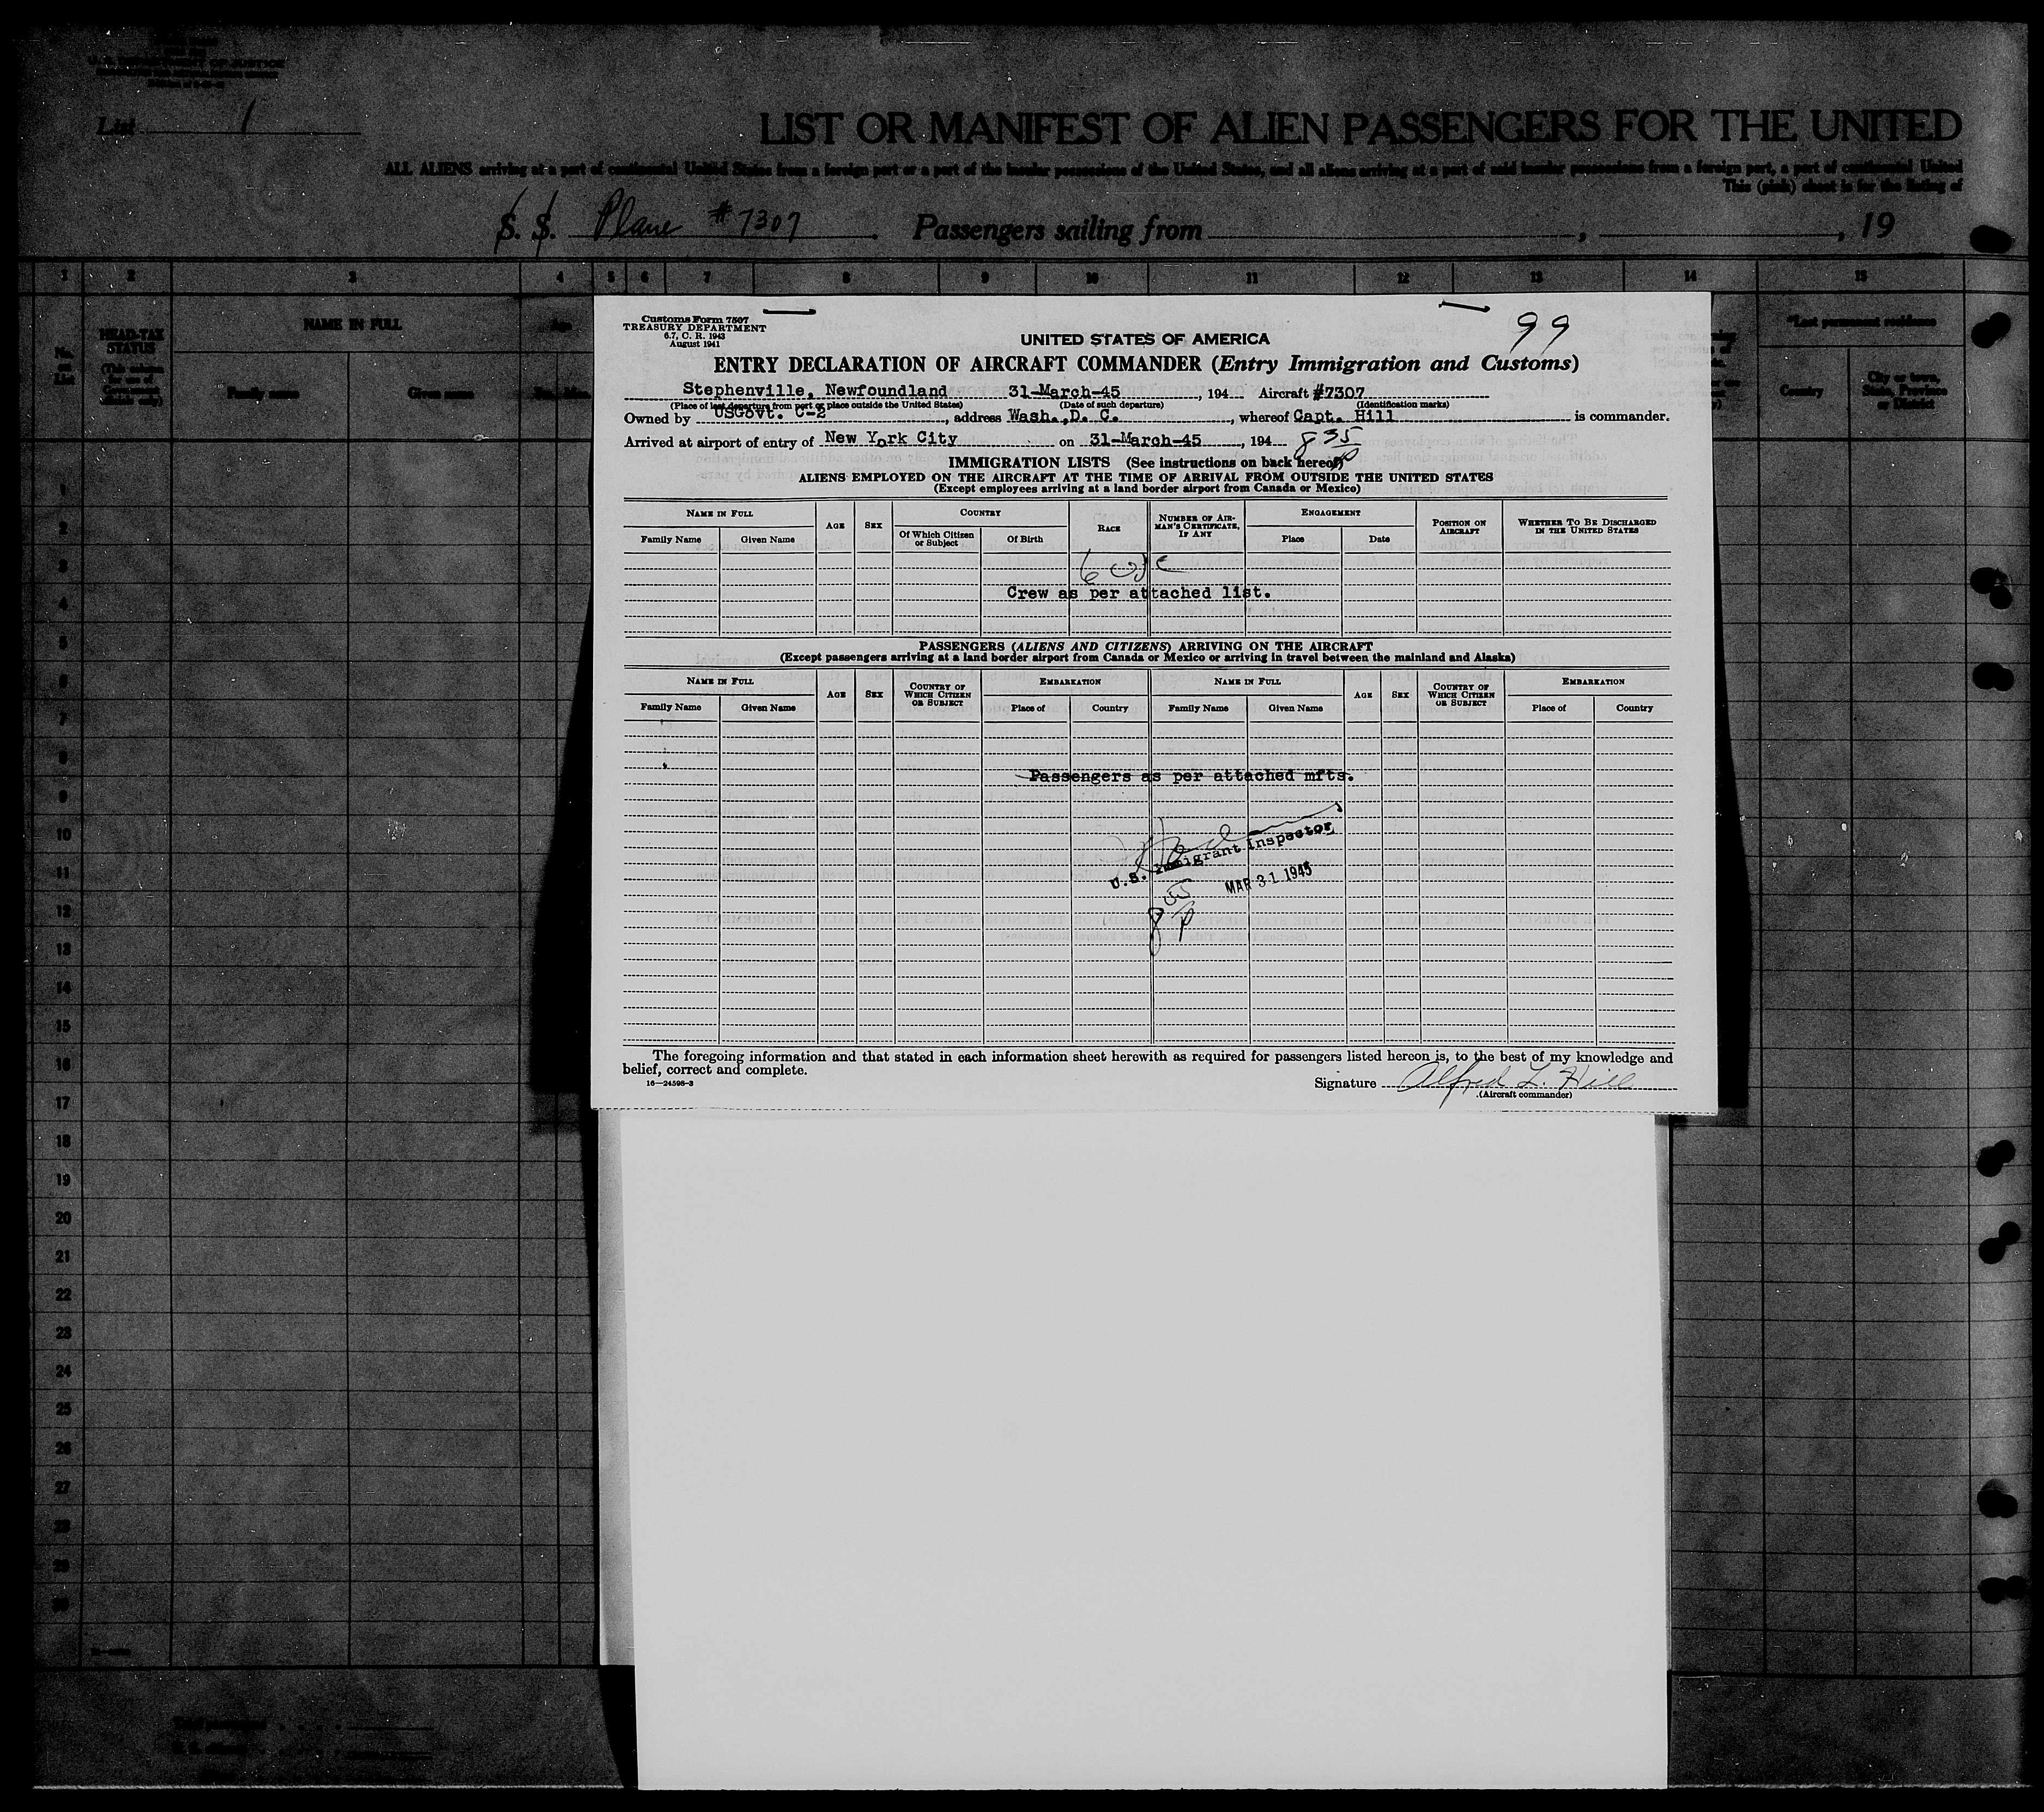 U. S. DEPARTMENT OF JUSTICE
List 1
LIST OR MANIFEST OF ALIEN PASSENGERS FOR THE UNITED
ALL ALIENS arriving at a port of continental United States from a foreign port or a port of the insular possessions of the United States, and all aliens arriving at a port of said insular possessions from a foreign port, a port of continental United
This (pink) sheet is for the listing of
S. S. Plane # 7307 Passengers sailing from , , 19
1 2 3 4 5 6 7 8 9 10 11 12 13 14 15
HEAD-TAX STATUS
NAME IN FULL
Age
Family name Given name
No. on List
*Last permanent residence
Country
City or town, State, Province or District
Customs Form 7507
TREASURY DEPARTMENT
6.7, C. R. 1943
August 1941
99
UNITED STATES OF AMERICA
ENTRY DECLARATION OF AIRCRAFT COMMANDER (Entry Immigration and Customs)
Stephenville, Newfoundland 31-March-45 , 194 Aircraft #7307
(Place of last departure from port or place outside the United States) (Date of such departure) (Identification marks)
Owned by USGovt. C-2 , address Wash.,D. C. , whereof Capt. Hill is commander.
Arrived at airport of entry of New York City on 31-March-45 , 194 8 35 p
IMMIGRATION LISTS (See instructions on back hereof)
ALIENS EMPLOYED ON THE AIRCRAFT AT THE TIME OF ARRIVAL FROM OUTSIDE THE UNITED STATES
(Except employees arriving at a land border airport from Canada or Mexico)
NAME IN FULL AGE SEX COUNTRY RACE NUMBER OF AIRMAN'S CERTIFICATE, IF ANY ENGAGEMENT POSITION ON AIRCRAFT WHETHER TO BE DISCHARGED IN THE UNITED STATES
Family Name Given Name Of Which Citizen or Subject Of Birth Place Date
Crew as per attached list.
PASSENGERS (ALIENS AND CITIZENS) ARRIVING ON THE AIRCRAFT
(Except passengers arriving at a land border airport from Canada or Mexico or arriving in travel between the mainland and Alaska)
NAME IN FULL AGE SEX COUNTRY OF WHICH CITIZEN OR SUBJECT EMBARKATION NAME IN FULL AGE SEX COUNTRY OF WHICH CITIZEN OR SUBJECT EMBARKATION
Family Name Given Name Place of Country Family Name Given Name Place of Country
Passengers as per attached mfts.
U.S. Immigrant Inspector
MAR 31 1945
8 55 p
The foregoing information and that stated in each information sheet herewith as required for passengers listed hereon is, to the best of my knowledge and
belief, correct and complete.
16—24598-3
Signature Alfred L. Hill
(Aircraft commander)
1
2
3
4
5
6
7
8
9
10
11
12
13
14
15
16
17
18
19
20
21
22
23
24
25
26
27
28
29
30